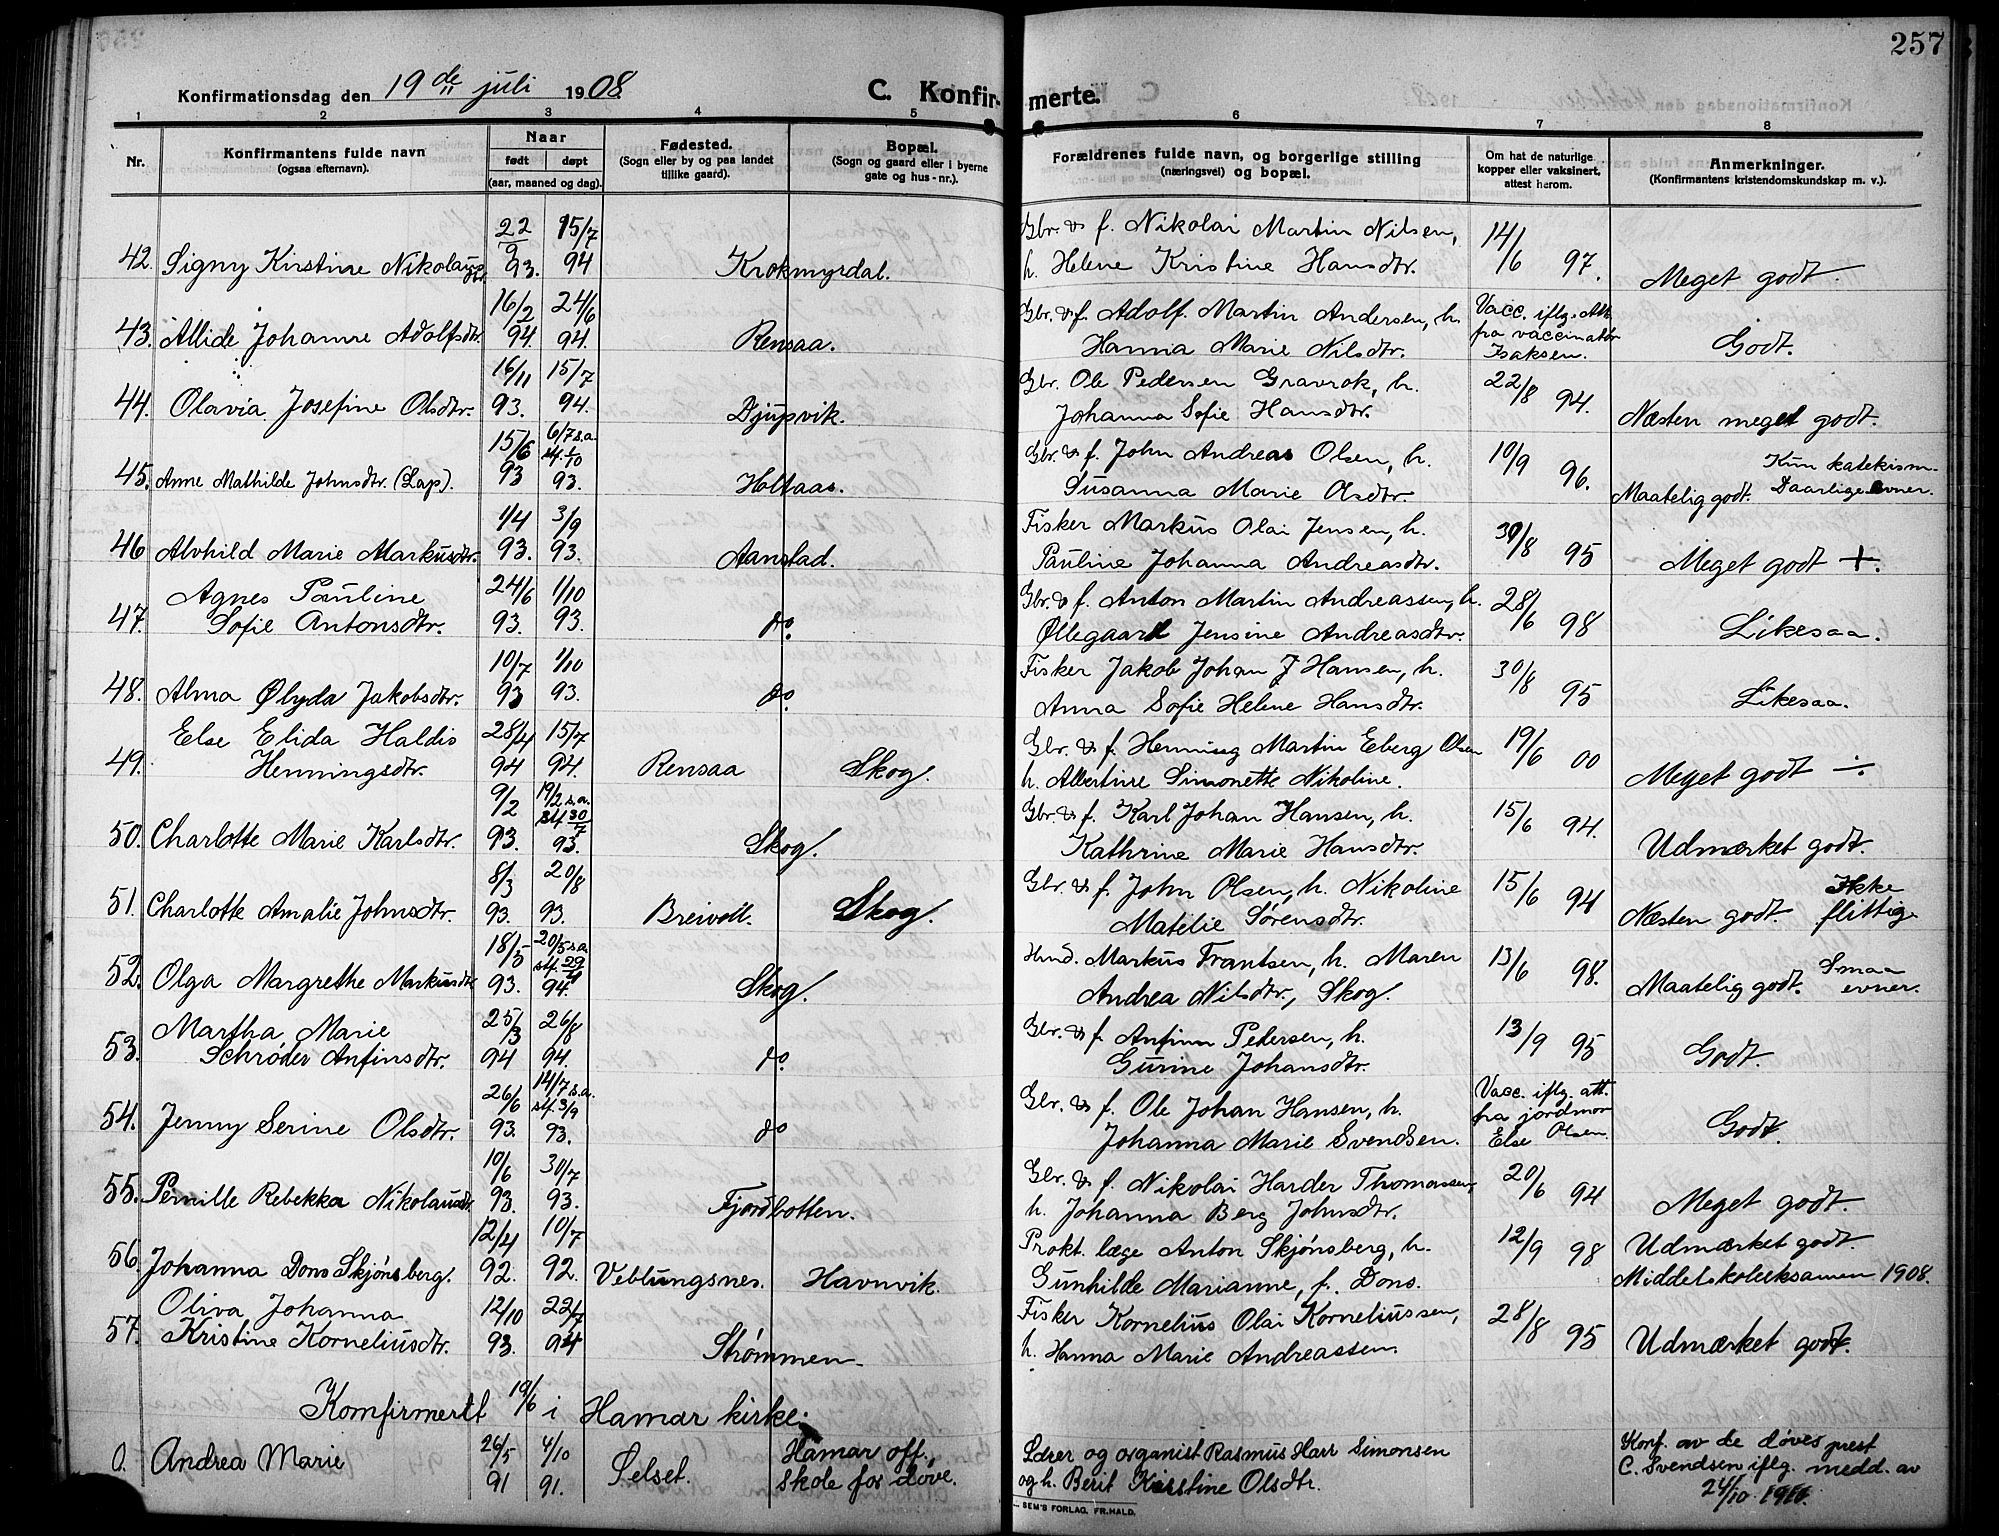 257
Konfirmationsdag den 19de juli 1908.
C. Konfirmerte.
1 2 3 4 5 6 7 8
Nr.
Konfirmantens fulde navn
(ogsaa efternavn).
Naar
født døpt
(aar, maaned og dag).
Fødested.
(Sogn eller by og paa landet
tillike gaard).
Bopæl.
(Sogn og gaard eller i byerne
gate og hus-nr.).
Forældrenes fulde navn, og borgerlige stilling
(næringsvei) og bopæl.
Om hat de naturlige
kopper eller vaksinert,
attest herom.
Anmerkninger.
(Konfirmantens kristendomskundskap m. v.).
22/9 15/7 Gbr. & f. Nikolai Martin Nilsen, 14/6
42. Signy Kirstine Nikolaysdtr. 93. 94 Krokmyrdal. h. Helene Kristine Hansdtr. 97. Meget godt.
16/2 24/6 Gbr. & f. Adolf Martin Andersen, h. Vacc. iflg. att.
43. Allide Johanne Adolfsdtr. 94. 94. Rensaa. Hanna Marie Nilsdtr. fra vaccinatør Isaksen. Godt.
16/11 15/7 Gbr. Ole Pedersen Gravrok, h. 22/8
44. Olavia Josefine Olsdtr. 93. 94. Djupvik. Johanna Sofie Hansdtr. 94. Næsten meget godt.
15/6 6/7 s.a. stf. 1/10 Gbr. & f. John Andreas Olsen, h. 10/9 Kun katekism.
45. Anne Mathilde Johnsdtr. (Lap). 93 93. Holtaas. Susanna Marie Olsdtr. 96. Maatelig godt. Daarlige evner.
1/4 3/9 Fisker Markus Olai Jensen, h. 30/8
46 Alvhild Marie Markusdtr. 93. 93. Aanstad. Pauline Johanna Andreasdtr. 95 Meget godt +.
Agnes Pauline 24/6 1/10 Gbr. & f. Anton Martin Andreassen, h. 28/6
47. Sofie Antonsdtr. 93. 93. do. Øllegaard Jensine Andreasdtr. 98 Likesaa.
10/7 1/10 Fisker Jakob Johan J Hansen, h. 30/8
48. Alma Ølyda Jakobsdtr. 93 93. do. Anna Sofie Helene Hansdtr. 95 Likesaa.
Else Elida Haldis 28/4 15/7 Gbr. & f. Henning Martin Eberg Olsen 19/6
49. Henningsdtr. 94 94. Rensaa Skog. h. Albertine Simonette Nikoline. 00 Meget godt ÷.
9/2 19/2 s.a. stf. 30/7 Gbr. & f. Karl Johan Hansen, h. 15/6
50. Charlotte Marie Karlsdtr. 93. 93. Skog. Kathrine Marie Hansdtr. 94. Udmærket godt.
8/3 20/8 Gbr. & f. John Olsen, h. Nikoline 15/6 Ikke
51. Charlotte Amalie Johnsdtr. 93. 93. Breivoll. Skog. Matelie Sørensdtr. 94 Næsten godt. flittig.
18/5 20/5 s.a. stf. 29/4 Hmd. Markus Frantsen, h. Maren 13/6 Smaa
52. Olga Margrethe Markusdtr. 93. 94. Skog. Andrea Nilsdtr., Skog. 98. Maatelig godt. evner.
Martha Marie 25/3 26/8 Gbr. & f. Anfinn Petersen, h. 13/9
53. Schrøder Anfinsdtr. 94 94. do. Gurine Johansdtr. 95 Godt.
26/6 14/7 s.a. stf. 3/9 Gbr. & f. Ole Johan Hansen, h. Vacc. iflg. att.
54. Jenny Serine Olsdtr. 93. 93. do Johanna Marie Svendsen. fra jordmor Else Olsen. Godt.
10/6 30/7 Gbr. & f. Nikolai Harder Thomassen, 20/6
55. Pernille Rebekka Nikolaisdtr. 93. 93. Fjordbotten. h. Johanna Berg Johnsdtr. 94 Meget godt.
12/4 10/7 Prakt. læge Anton Skjønsberg, h. 12/9 Udmærket godt.
56. Johanna Dons Skjønsberg. 92. 92. Veblungsnes. Havnvik. Gunhilde Marianne, f. Dons. 98 Middelskoleeksamen 1908.
Oliva Johanna 12/10 22/7 Fisker Kornelius Olai Korneliussen, 28/8
57. Kristine Korneliusdtr. 93. 94 Strømmen. h. Hanna Marie Andreassen. 95 Udmærket godt.
Konfirmert 19/6 i Hamar kirke.
0. Andrea Marie 26/5 91 4/10 91. Selset. Hamar off. skole for døve. Lærer og organist Rasmus Harr Simonsen Konf. av de døves prest
og h. Berit Kirstine Olsdtr. C. Svendsen iflg. medd. av
24/10 1910.
SEM'S FORLAG, FR.HALD.